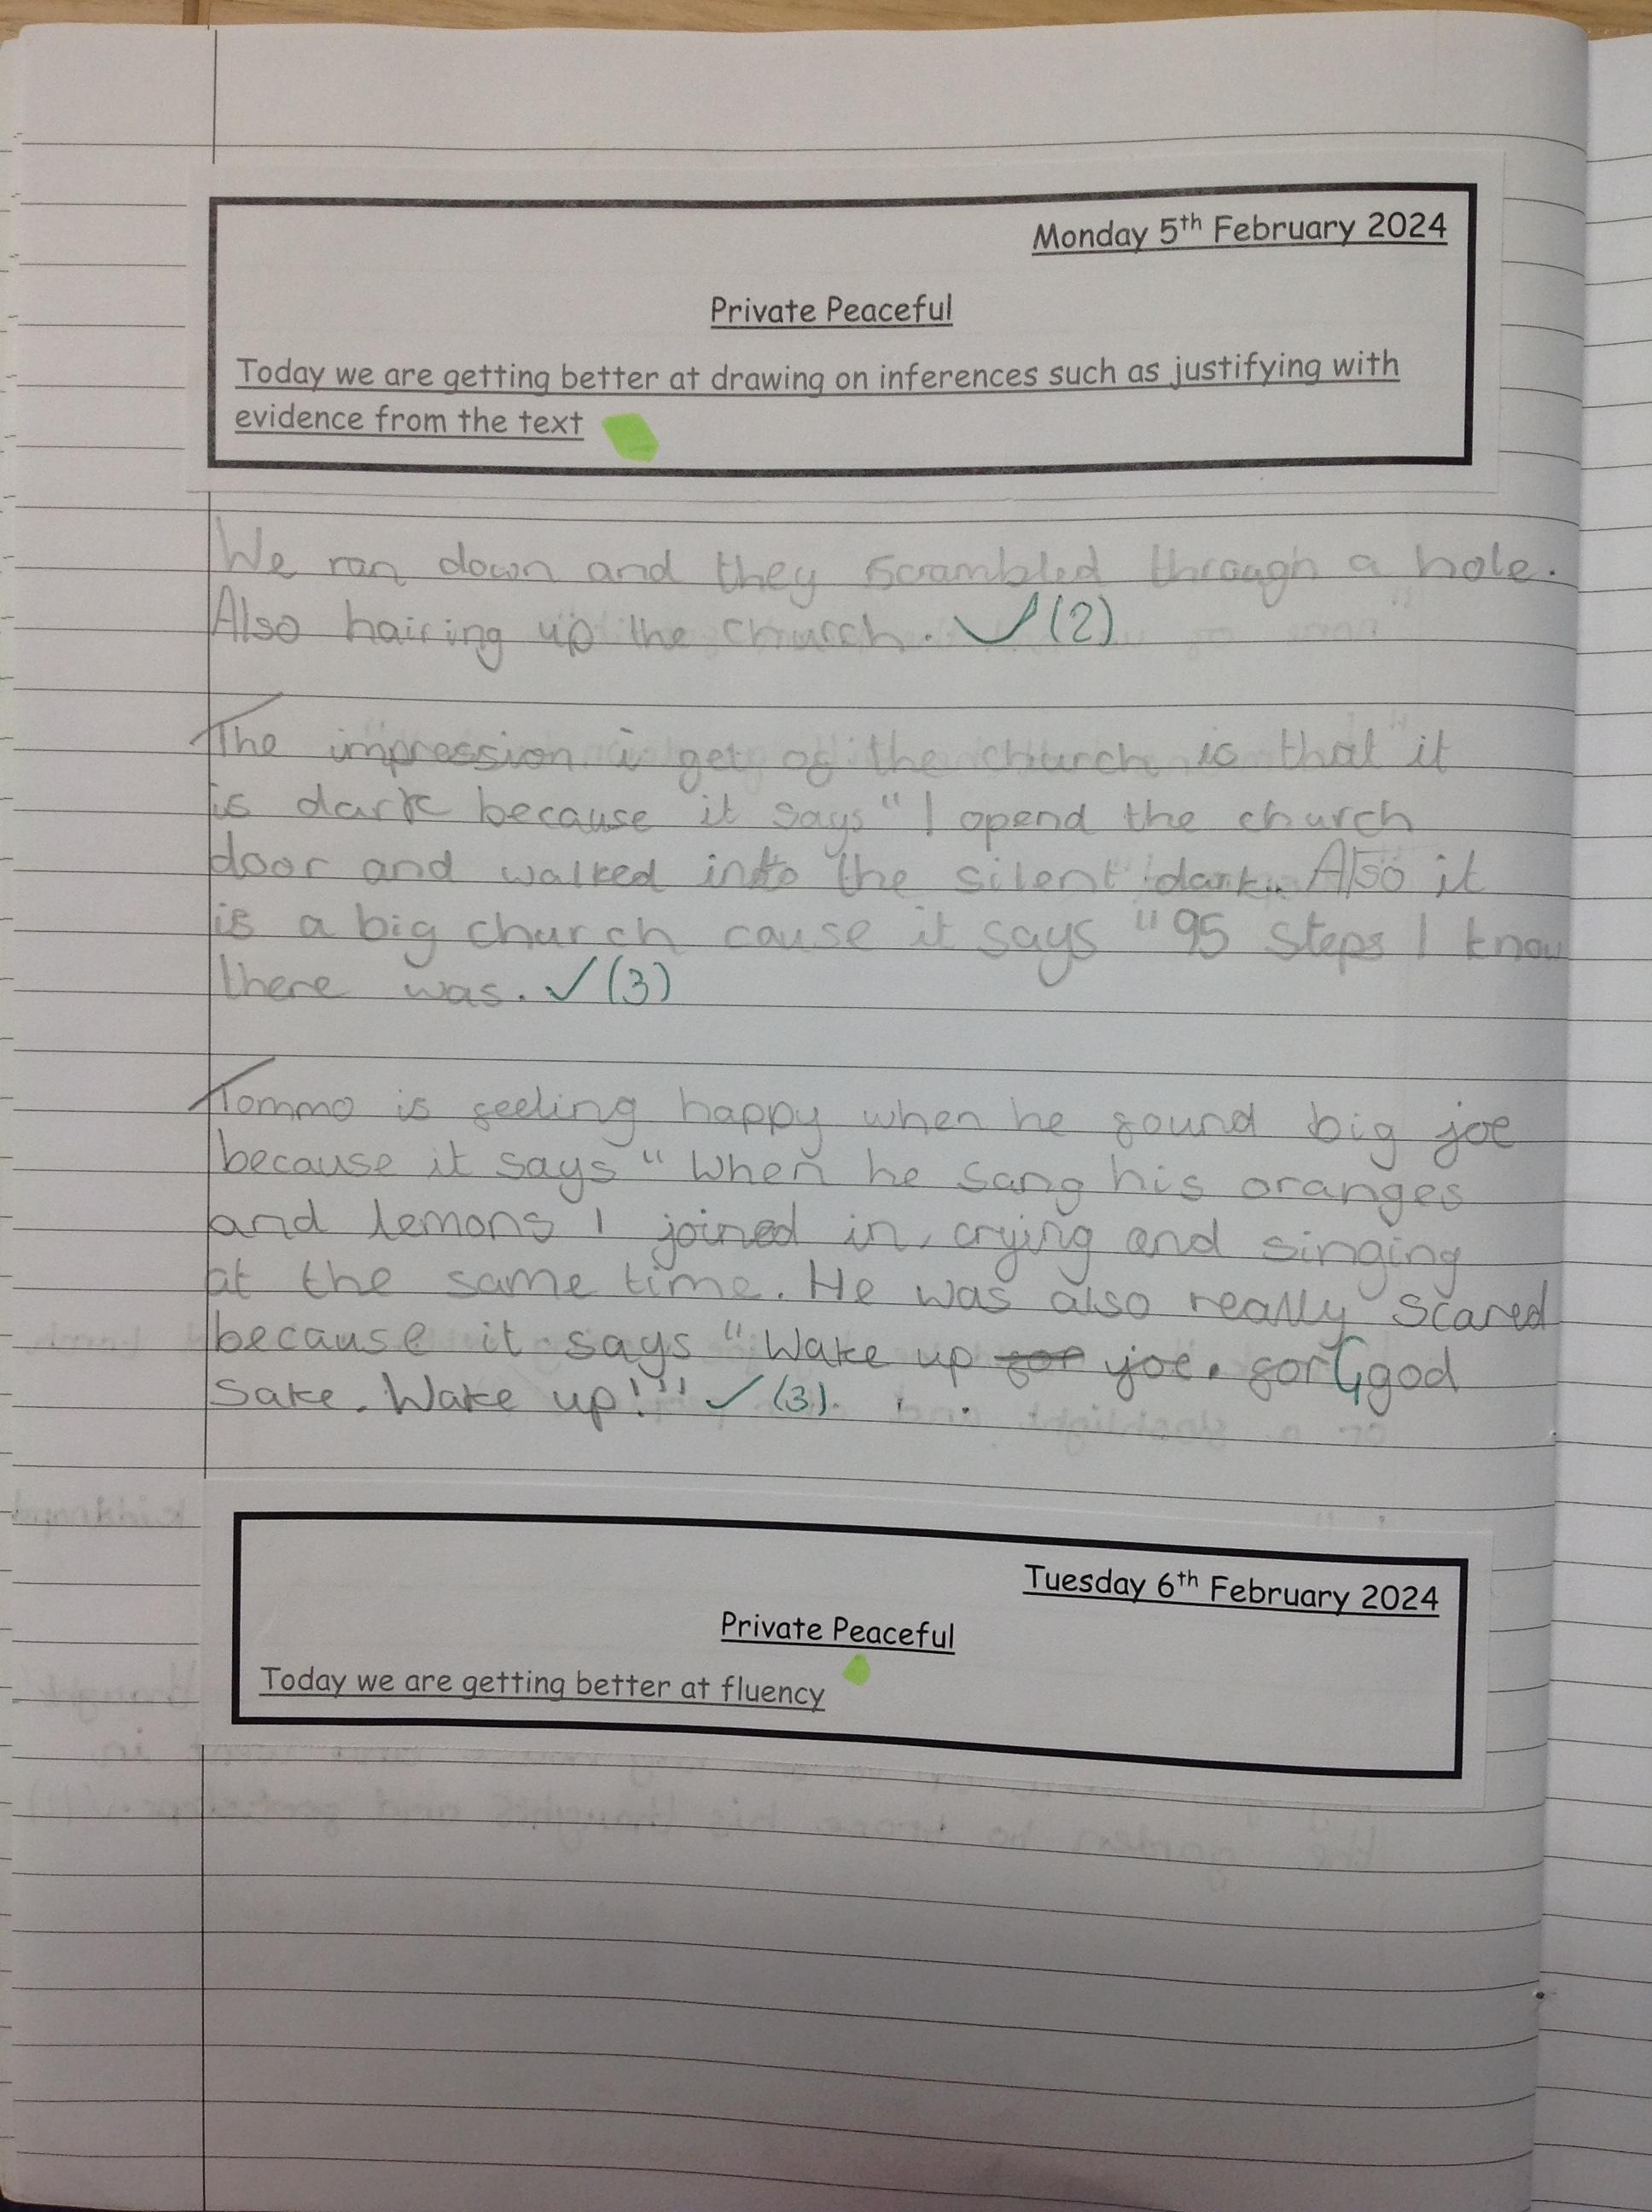 Monday 5th February 2024
Private Peaceful
Today we are getting better at drawing on inferences such as justifying with
evidence from the text
We ran down and they scrambled through a hole.
Also hairing up the church. ✓(2)
The impression i get of the church is that it
is dark because it says "I opend the church
door and walked into the silent dark. Also it
is a big church cause it says "95 steps I know
there was. ✓(3)
Tommo is feeling happy when he found big joe
because it says "When he sang his oranges
and lemons I joined in, crying and singing
at the same time. He was also really scared
because it says "Wake up for joe. for G god
sake. Wake up!" ✓(3)
Tuesday 6th February 2024
Private Peaceful
Today we are getting better at fluency